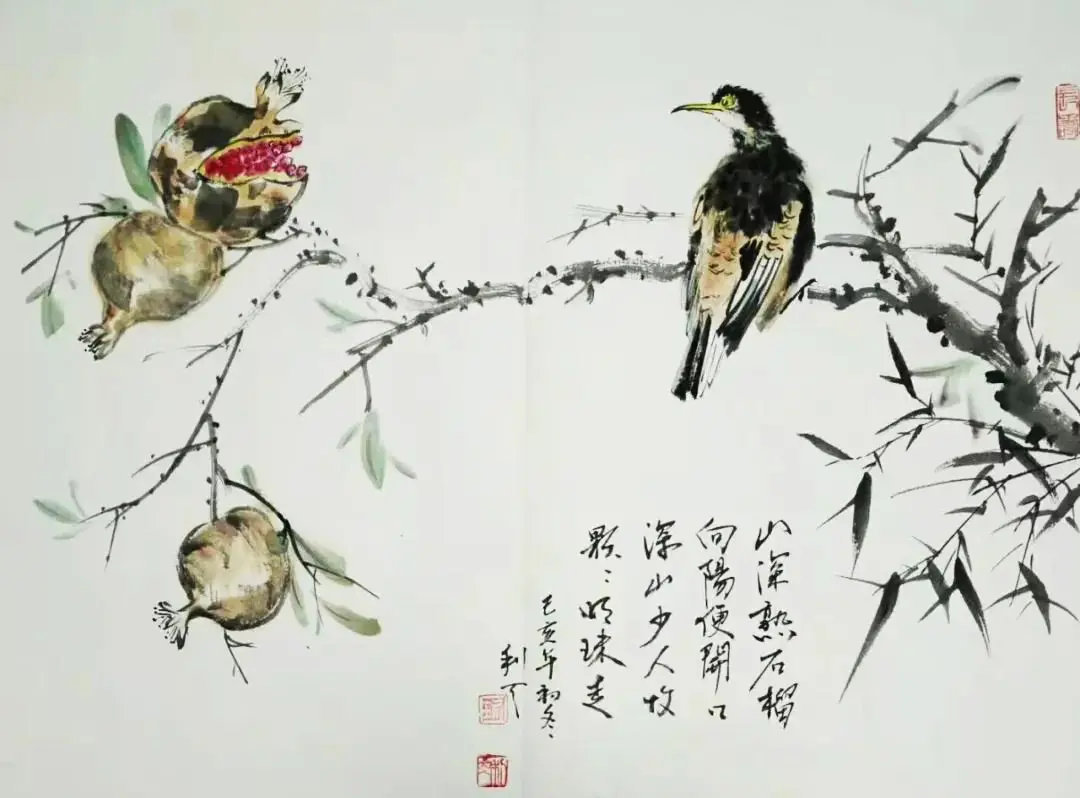 山深熟石榴
向陽便開口
深山少人收
顆〻明珠走
己亥年初冬
利